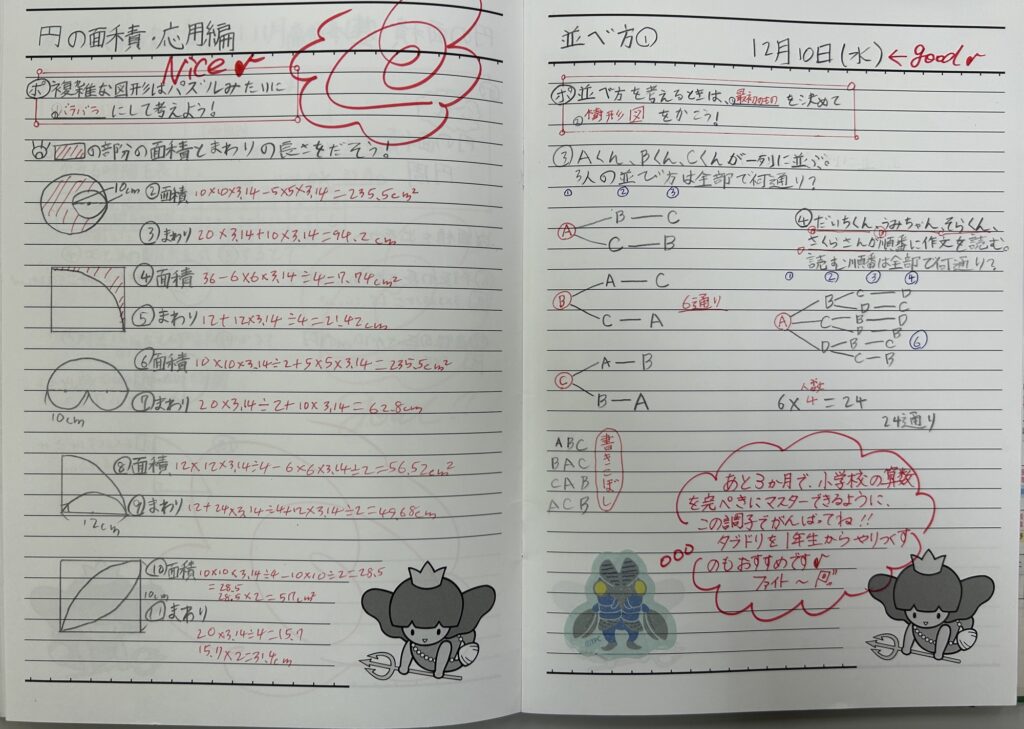 円の面積・応用編
Nice
ポ 複雑な図形はパズルみたいに
バラバラ にして考えよう!
の部分の面積とまわりの長さをだそう!
10cm
②面積 10×10×3.14-5×5×3.14=235.5cm²
③まわり 20×3.14+10×3.14=94.2cm
④面積 36-6×6×3.14÷4=7.74cm²
⑤まわり 12+12×3.14÷4=21.42cm
⑥面積 10×10×3.14÷2+5×5×3.14=235.5cm²
⑦まわり 20×3.14÷2+10×3.14=62.8cm
10cm
⑧面積 12×12×3.14÷4-6×6×3.14÷2=56.52cm²
⑨まわり 12+24×3.14÷4+12×3.14÷2=49.68cm
12cm
⑩面積 10×10×3.14÷4-10×10÷2=28.5
=28.5
28.5×2=57cm²
10cm
⑪まわり
20×3.14÷4=15.7
15.7×2=31.4cm
並べ方①
12月10日(水) ←good
ポ 並べ方を考えるときは、①最初のもの を決めて
②樹形図 をかこう!
③Aくん、Bくん、Cくんが一列に並ぶ。
3人の並び方は全部で何通り?
① ② ③
A
B — C
C — B
B
A — C
C — A
6通り
C
A — B
B — A
④だいちくん、うみちゃん、そらくん、
さくらさんが順番に作文を読む。
読む順番は全部で何通り?
① ② ③ ④
A
B
C — D
D — C
C
B — D
D — B
D
B — C
C — B
⑥
人数
6×4=24
24通り
ABC
BAC
CAB
ACB
書きこぼし
あと3か月で、小学校の算数
を完ぺきにマスターできるように、
この調子でがんばってね!!
タブドリを1年生からやりつくす
のもおすすめです
ファイト〜